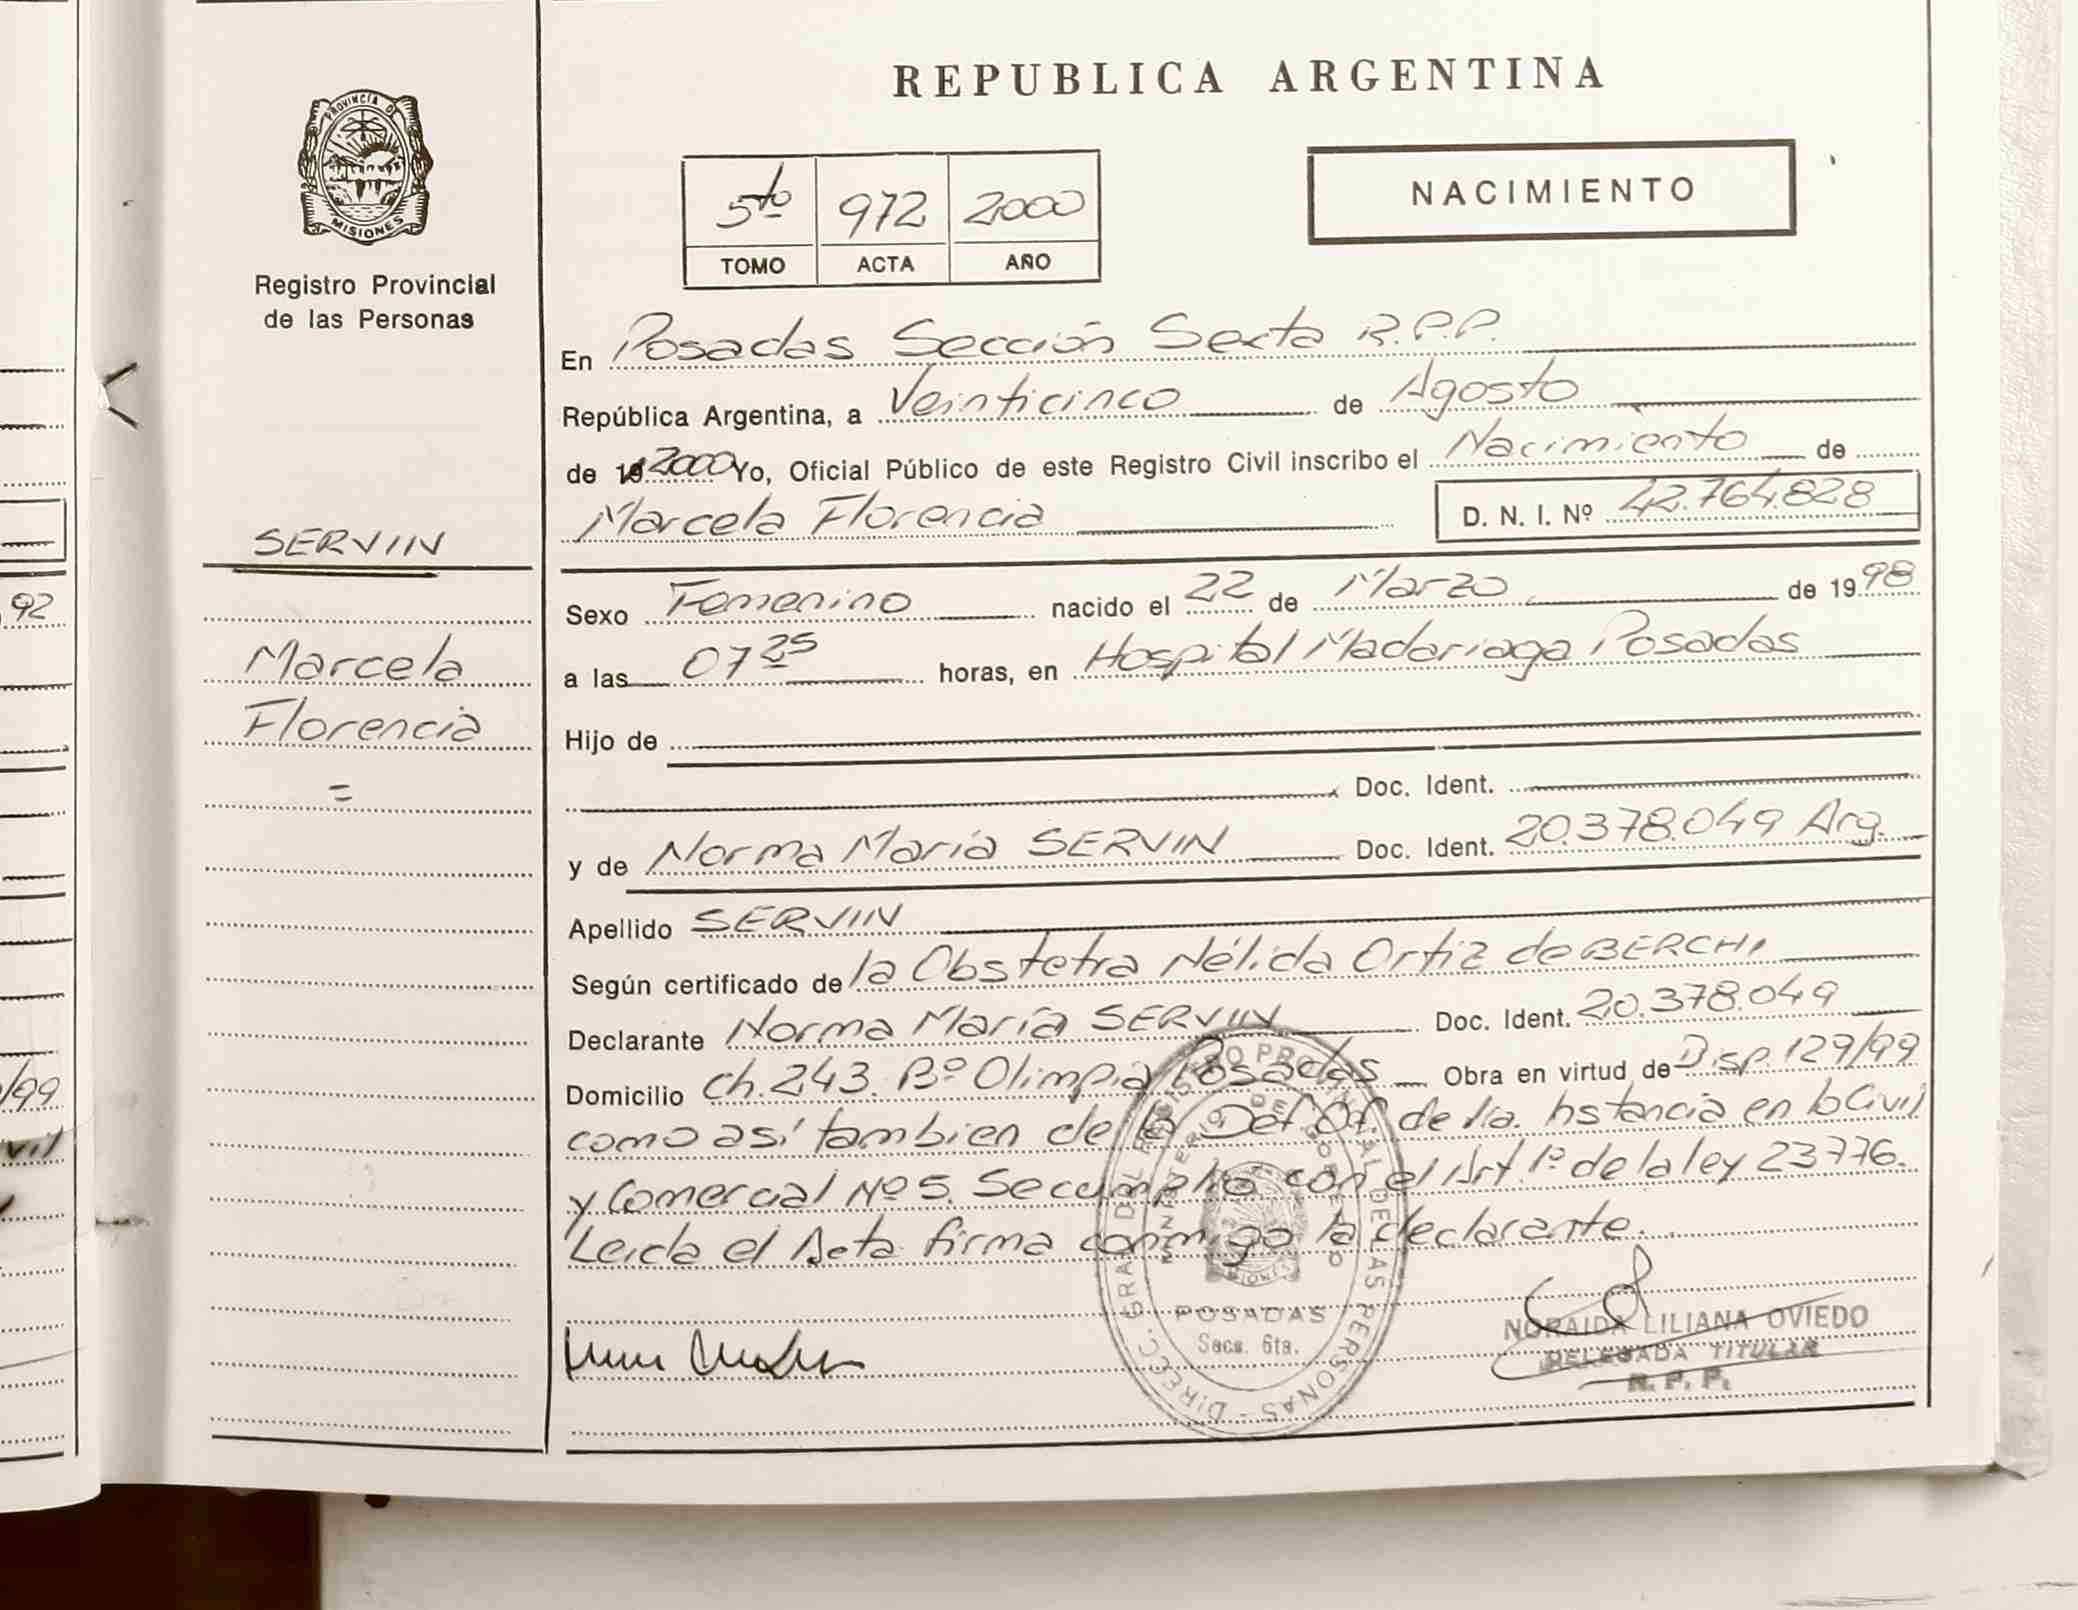 PROVINCIA DE
MISIONES
Registro Provincial
de las Personas
SERVIN
Marcela
Florencia
=
92
/99
vil
REPUBLICA ARGENTINA
5to 972 2000
TOMO ACTA AÑO
NACIMIENTO
En Posadas Sección Sexta R.P.P.
República Argentina, a Veinticinco de Agosto
de 19 2000 Yo, Oficial Público de este Registro Civil inscribo el Nacimiento de
Marcela Florencia D. N. I. Nº 42.764.828
Sexo Femenino nacido el 22 de Marzo de 19 98
a las 07 25 horas, en Hospital Madariaga Posadas
Hijo de
Doc. Ident.
y de Norma María SERVIN Doc. Ident. 20.378.049 Arg.
Apellido SERVIN
Según certificado de la Obstetra Nélida Ortiz de BERCHI
Declarante Norma María SERVIN Doc. Ident. 20.378.049
Domicilio Ch. 243. Bº Olimpia Posadas Obra en virtud de Disp. 129/99
como así tambien de la Def Of. de 1ra. Instancia en lo Civil
y Comercial Nº 5. Se cumplió con el Art. 1º de la ley 23776.
Leida el Acta firma conmigo la declarante.
DIREC. GRAL DEL REGISTRO PROVINCIAL DE LAS PERSONAS
MINISTERIO DE GOBIERNO
MISIONES
POSADAS
Secc. 6ta.
NORAIDA LILIANA OVIEDO
DELEGADA TITULAR
R. P. P.